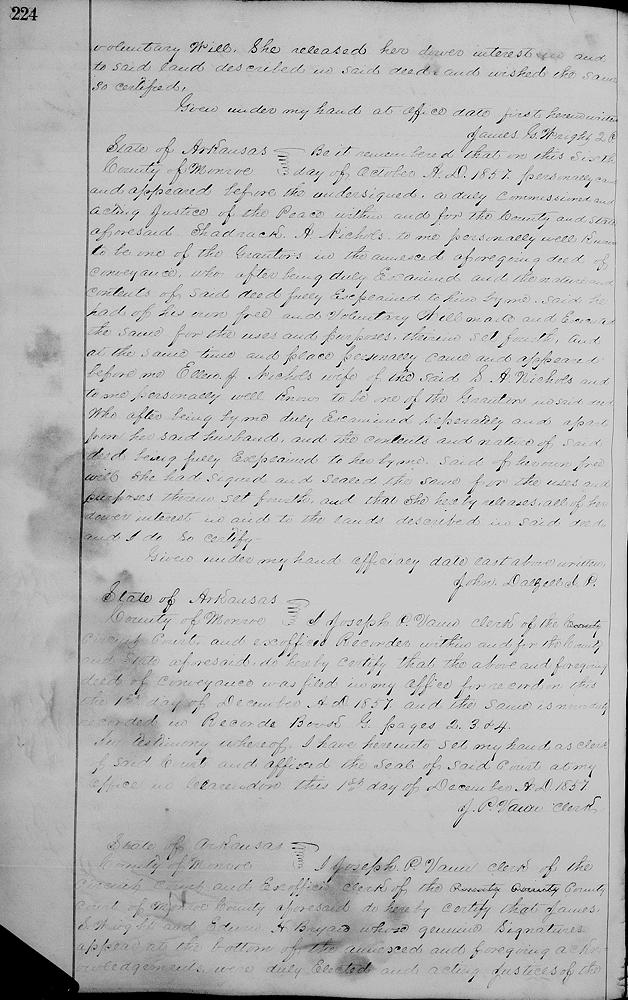 224
voluntary Will. She released her dower interest in and
to said land described in said deed and wished the same
so certified.
Given under my hand at office date first herein written
James G. Wright
State of Arkansas
County of Monroe
Be it remembered that on this Sixth
day of October A.D. 1857 personally came
and appeared before the undersigned, a duly commissioned and
acting Justice of the Peace within and for the County and State
afforesaid Shadrack. A Nichols. to me personally well Known
to be one of the Grantors in the annexed aforegoing deed of
conveyance, who after being duly Examined and the nature and
contents of said deed fully Explained to him by me. said he
had of his own free and Voluntary Will made and Executed
the same for the uses and purposes. therein set fourth, and
at the same time and place personally came and appeared
before me Ellen J Nichols wife of the said S. A Nichols and
to me personally well Known to be one of the Grantors in said deed
Who after being by me duly Examined Seperately and apart
from her said husband, and the contents and nature of said
deed being fully Explained to her by me. said of her own free
will she had signed and sealed the same for the uses and
purposes therein set fourth, and that she hereby releases, all of her
dower interest in and to the lands described in said deed,
and I do so certify-
Given under my hand officiary date last above written,
John. Dalzell J. P.
State of Arkansas
County of Monroe
I Joseph. P. Vann clerk of the County
Circuit Court, and exofficio Recorder within and for the County
and State aforesaid, do hereby certify that the above and foregoing
deed of conveyance was filed in my office for record on this
the 1st day of December A.D 1857 and the same is now duly
recorded in Records Book G. pages 2. 3 & 4.
In testimony whereof, I have hereunto set my hand as clerk
of said Court and affixed the Seal of said Court at my
office in Clarendon this 1st day of December A.D 1857
J. P. Vann Clerk
State of Arkansas
County of Monroe
I Joseph. P. Vann clerk of the
circuit Court and Exofficio clerk of the County County County
court of Monroe County aforesaid do hereby certify that James.
G Wright and Edwin H Bryan whose genuine Signatures
appear at the bottom of the annexed and foregoing ackno-
wledgements, were duly Elected and acting Justices of the